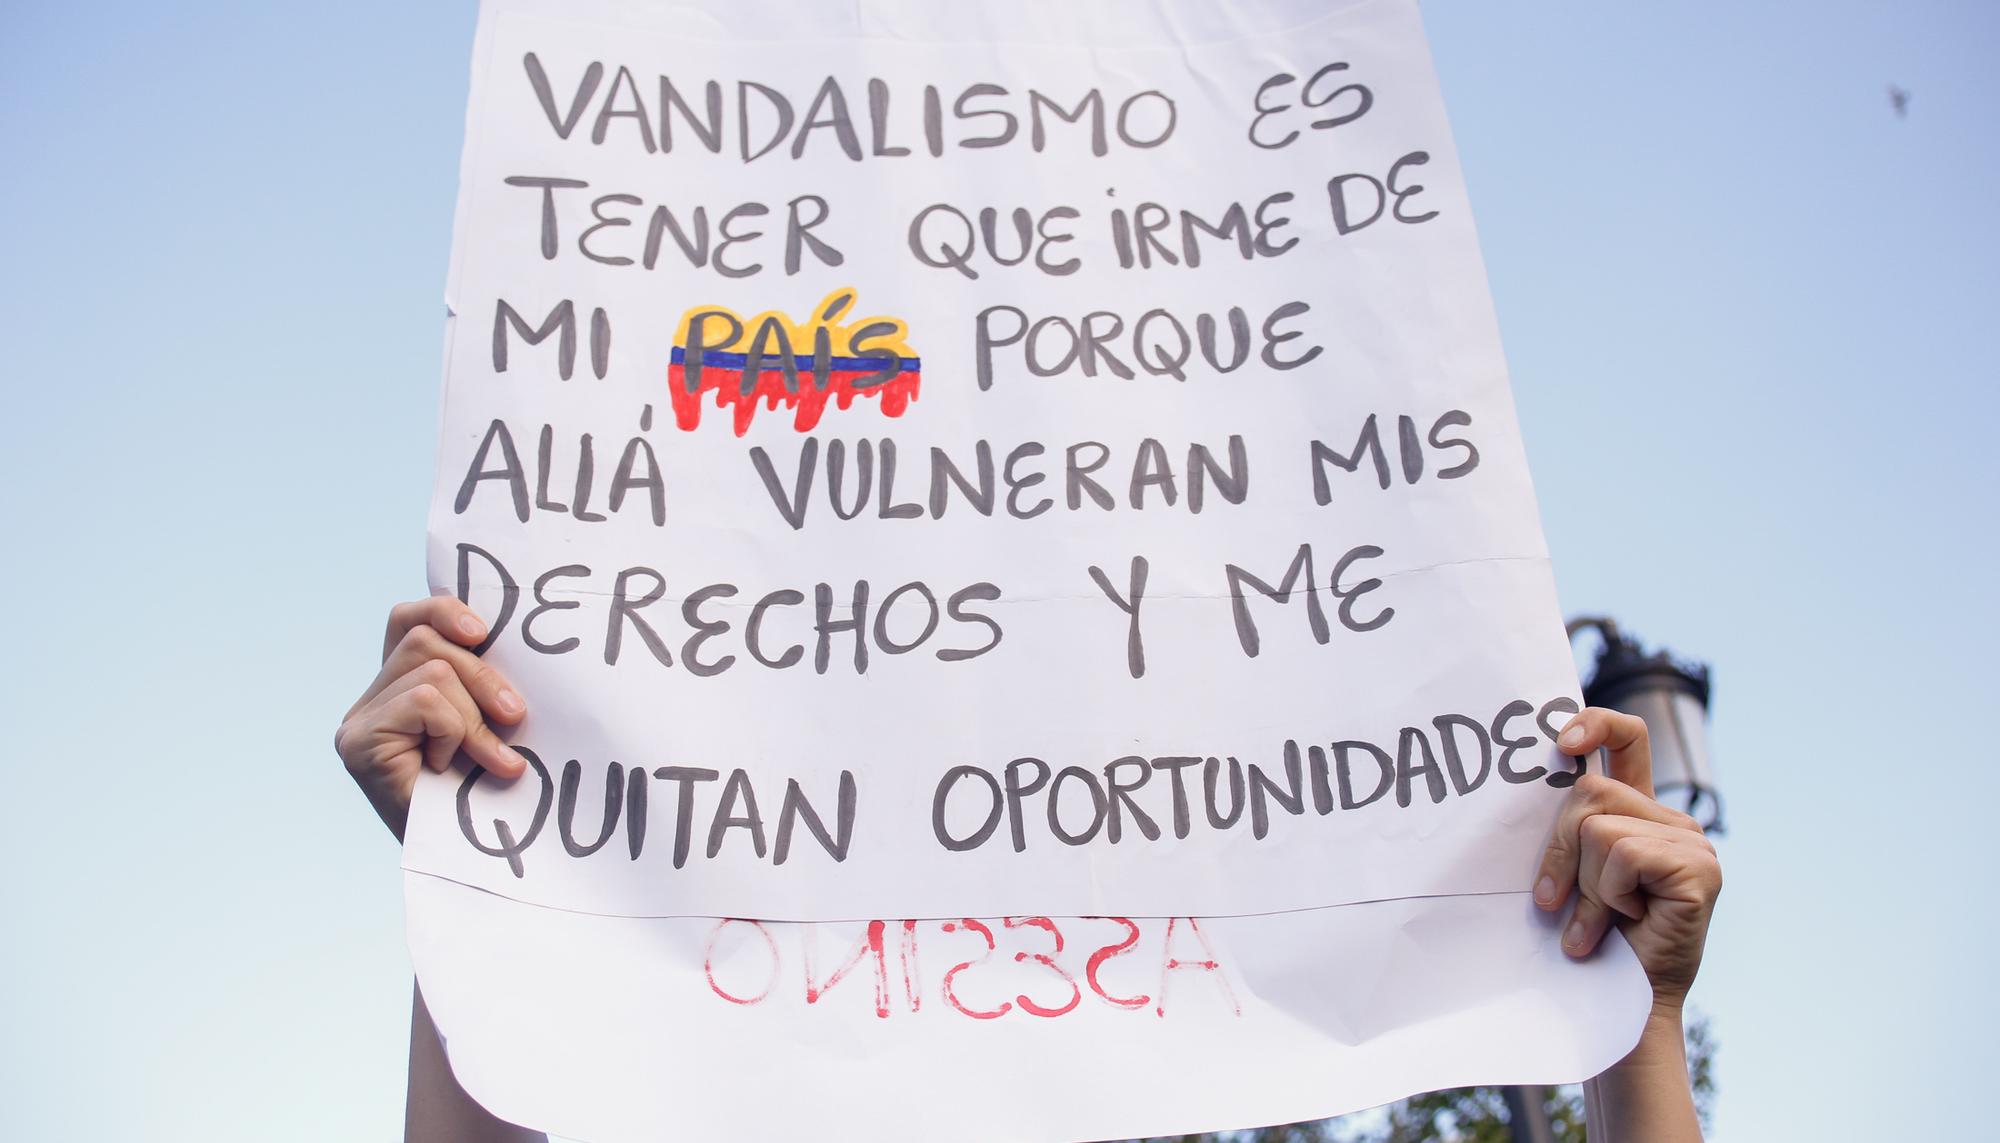 VANDALISMO ES
TENER QUE IRME DE
MI PAÍS PORQUE
ALLÁ VULNERAN MIS
DERECHOS Y ME
QUITAN OPORTUNIDADES
ASESINO